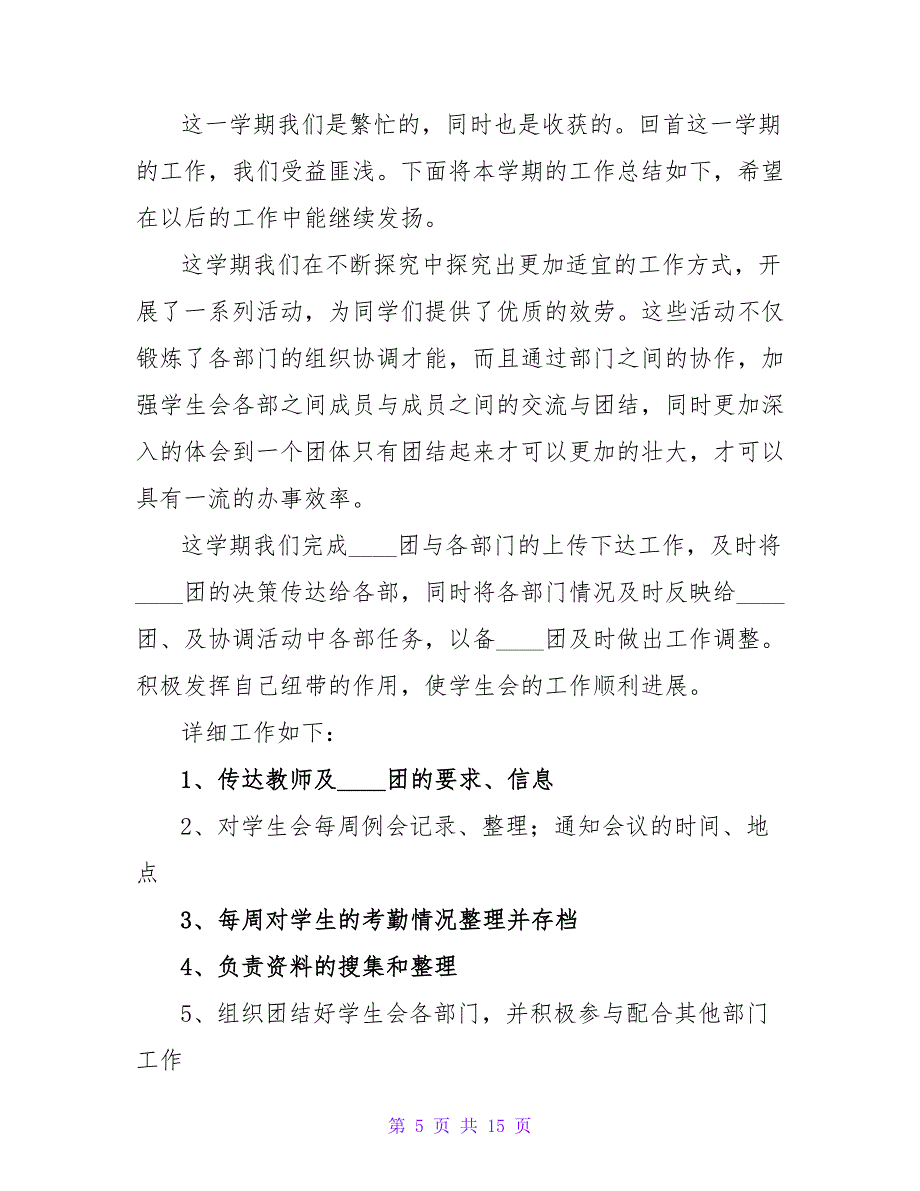 这一学期我们是繁忙的，同时也是收获的。回首这一学期
的工作，我们受益匪浅。下面将本学期的工作总结如下，希望
在以后的工作中能继续发扬。
这学期我们在不断探究中探究出更加适宜的工作方式，开
展了一系列活动，为同学们提供了优质的效劳。这些活动不仅
锻炼了各部门的组织协调才能，而且通过部门之间的协作，加
强学生会各部之间成员与成员之间的交流与团结，同时更加深
入的体会到一个团体只有团结起来才可以更加的壮大，才可以
具有一流的办事效率。
这学期我们完成____团与各部门的上传下达工作，及时将
____团的决策传达给各部，同时将各部门情况及时反映给____
团、及协调活动中各部任务，以备____团及时做出工作调整。
积极发挥自己纽带的作用，使学生会的工作顺利进展。
详细工作如下：
1、传达教师及____团的要求、信息
2、对学生会每周例会记录、整理；通知会议的时间、地
点
3、每周对学生的考勤情况整理并存档
4、负责资料的搜集和整理
5、组织团结好学生会各部门，并积极参与配合其他部门
工作
第 5 页 共 15 页